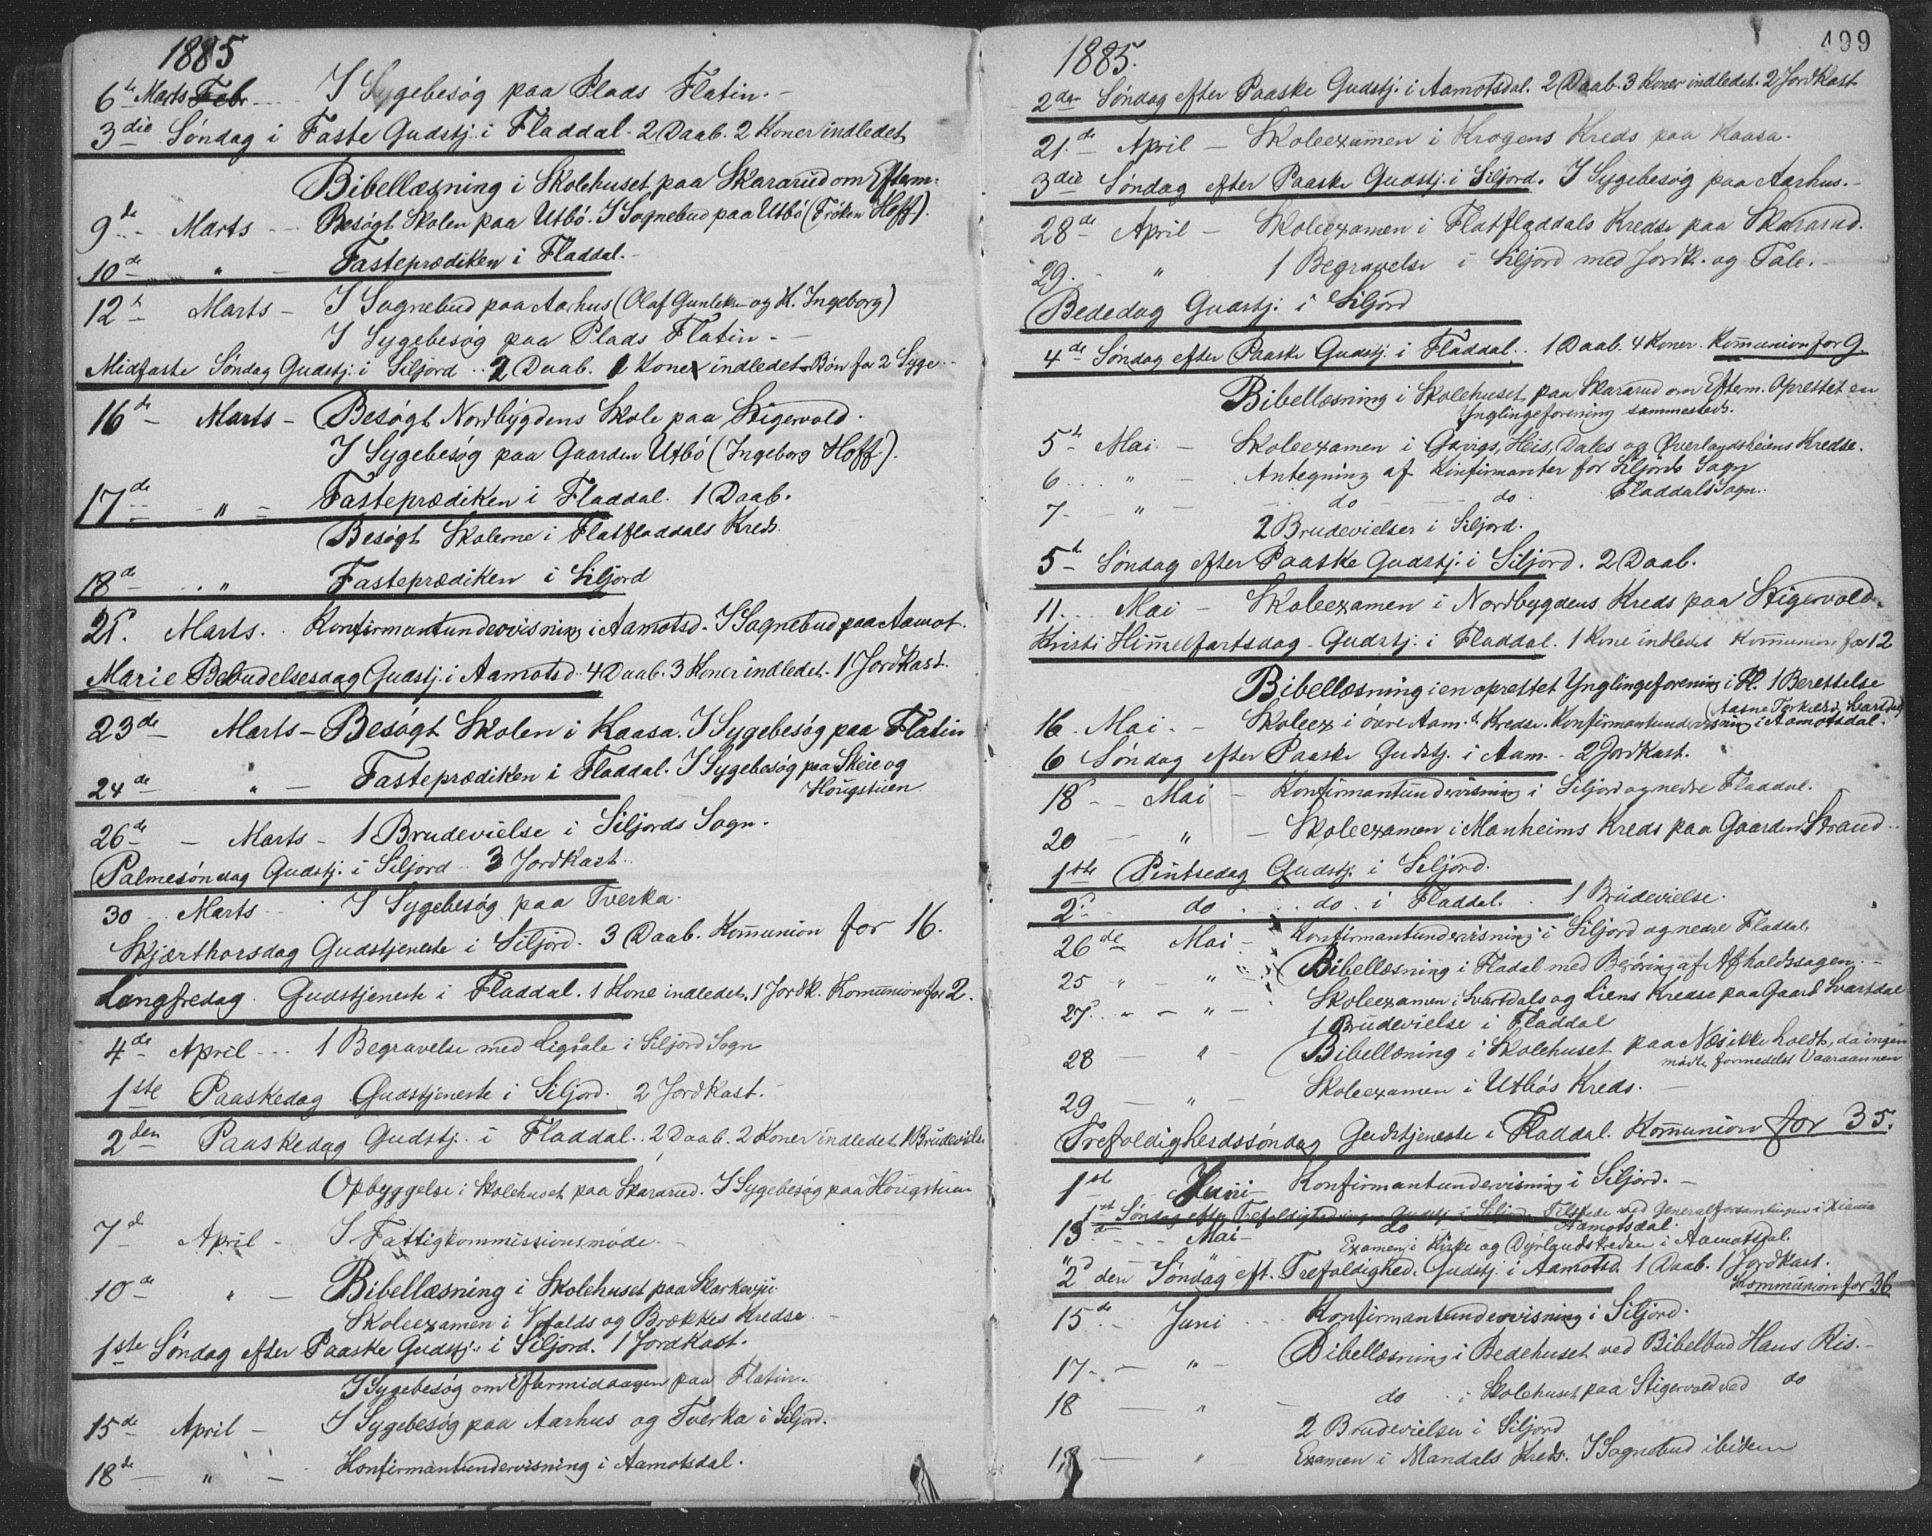 1885
6te Marts Febr. ... I Sygebesøg paa Plads Flatin. -
3die Søndag i Faste Gudstj. i Fladdal. 2 Daab. 2 Koner indledet
Bibellæsning i Skolehuset paa Skararud om Efterm.
9de - Marts - Besøgt Skolen paa Utbö. I Sognebud paa Utbö (Frøken Hoff).
10de " - Fasteprædiken i Fladdal. -
12te Marts - I Sognebud paa Aarhus (Olaf Gunleiks. og K. Ingeborg)
I Sygebesøg paa Plads Flatin. -
Midfaste Søndag Gudstj. i Siljord .. 2 Daab. 1 Kone indledet. Bøn for 2 Syge.
16de - Marts - Besøgt Nordbygdens Skole paa Stigervold.
I Sygebesøg paa Gaarden Utbö (Ingeborg Hoff.).
17de .. " - Fasteprædiken i Fladdal. 1 Daab.
Besøgt Skolerne i Flatfladdals Kreds.
18de .. " Fasteprædiken i Siljord
21. Marts. Konfirmantundervisning i Aamotsd. I Sognebud paa Aamot.
Marie Bebudelsesdag Gudstj. i Aamotsd. 4 Daab. 3 Koner indledet. 1 Jordkast.
23de Marts - Besøgt Skolen i Kaasa. I Sygebesøg paa Flatin
24de " - Fasteprædiken i Fladdal. I Sygebesøg paa Skeie og
Hougstuen
26de - Marts - 1 Brudevielse i Siljords Sogn.
Palmesöndag Gudstj. i Siljord .. 3 Jordkast.
30 .. Marts .. I Sygebesøg paa Tverka.
Skjærthorsdag Gudstjeneste i Siljord. 3 Daab. Kommunion for 16.
Langfredag. Gudstjeneste i Fladdal. 1 Kone indledet, 1 Jordk. Kommunion for 2.
4de April ... 1 Begravelse med Ligtale i Siljord Sogn
1ste Paaskedag Gudstjeneste i Siljord. 2 Jordkast.
2den Paaskedag Gudstj. i Fladdal .. 2 Daab. 2 Koner indledet. 1 Brudevielse
Opbyggelse i Skolehuset paa Skararud. I Sygebesøg paa Hougstuen
7d April - I Fattigkommissionsmöde. -
10de " - Bibellæsning i Skolehuset paa
Skoleexamen i og Brækkes Kredse. -
1ste Søndag efter Paaske Gudstj. i Siljord. 1 Jordkast.
I Sygebesøg om Eftermiddagen paa Flatin.
15de April - I Sygebesøg paa Aarhus og Tverka i Siljord.
18de " - Konfirmantundervisning i Aamotsdal.
1885.
499
2den Søndag efter Paaske Gudstj. i Aamotsdal. 2 Daab. 3 Koner indledet. 2 Jordkast
21de April - Skoleexamen i Krogens Kreds paa Kaasa.
3die Søndag efter Paaske Gudstj. i Siljord. I Sygebesøg paa Aarhus. -
28de April - Skoleexamen i Flatfladdals Kreds paa Skararud.
29. - " 1 Begravelse i Siljord med Jordk. og Tale. -
Bededag Gudstj. i Siljord
4de Søndag efter Paaske Gudstj. i Fladdal .. 1 Daab. 4 Koner. Kommunion for 9.
Bibellæsning i Skolehuset paa Skararud om Efterm. Oprettet en
Ynglingeforening sammesteds.
5te Mai - Skoleexamen i Heis, Dales og Øverlandsheiens Kredse.
6 ... " - Antegning af Konfirmanter for Siljords Sogn
7 - " - do - do Fladdals Sogn.
2 Brudevielser i Siljord.
5te Søndag efter Paaske Gudstj. i Siljord. 2 Daab.
11 ... Mai - Skoleexamen i Nordbygdens Kreds paa Stigervold.
Kristi Himmelfartsdag - Gudstj. i Fladdal. 1 Kone indledet Kommunion for 12
Bibellæsning i en oprettet Ynglingeforening i Fl. 1 Berettelse
(Aasne Torkelsd. Svartdal)
16. Mai. - Skoleex. i övre Aam.d Kredse. Konfirmantundervisning i Aamotsdal.
6 Søndag efter Paaske Gudstj. i Aam. - 2 Jordkast.
18 - - Mai - Konfirmantundervisning i Siljord og nedre Fladdal.
20 - " - Skoleexamen i Manheims Kreds paa Gaarden Strand ..
1ste Pintsedag Gudstj. i Siljord.
2. do ... do. i Fladdal. . 1 Brudevielse.
26de Mai - Konfirmantundervisning i Siljord og nedre Fladdal.
25 " - " Bibellæsning i Fladal med Berøring af Afholdssagen -
27. " - " - Skoleexamen i Svartdals og Liens Kredse paa Gaard Svartdal
1 Brudevielse i Fladdal
28 - " - Bibellæning i Skolehuset paa Næs ikke holdt, da ingen
mødte formedelst Vaaraannen
29 - " - Skoleexamen i Utbös Kreds. -
Trefoldighedssöndag Gudstjeneste i Fladdal. Kommunion for 35.
1st Juni - Konfirmantundervisning i Siljord. -
1st Søndag efter Trefoldighed Gudstj. i Siljord. Tilstede ved Generalforsamlingen i Xiania
13 ... Mai - do Aamotsdal.
Examen i Kirke og Dyrlandskredsen i Aamotsdal.
" 2den Søndag eft. Trefoldighed. Gudstj. i Aamotsd. 1 Daab. 1 Jordkast.
Kommunion for 36
15de .. Juni ... Konfirmantundervisning i Siljord.
17 - - " - Bibellæsning i Bedehuset ved Bibelbud Hans Ris. -
18 - " - do i Skolehuset paa Stigervold ved do
2 Brudevielser i Siljord
18 - " - Examen i Mandals Kreds. I Sognebud ibidem